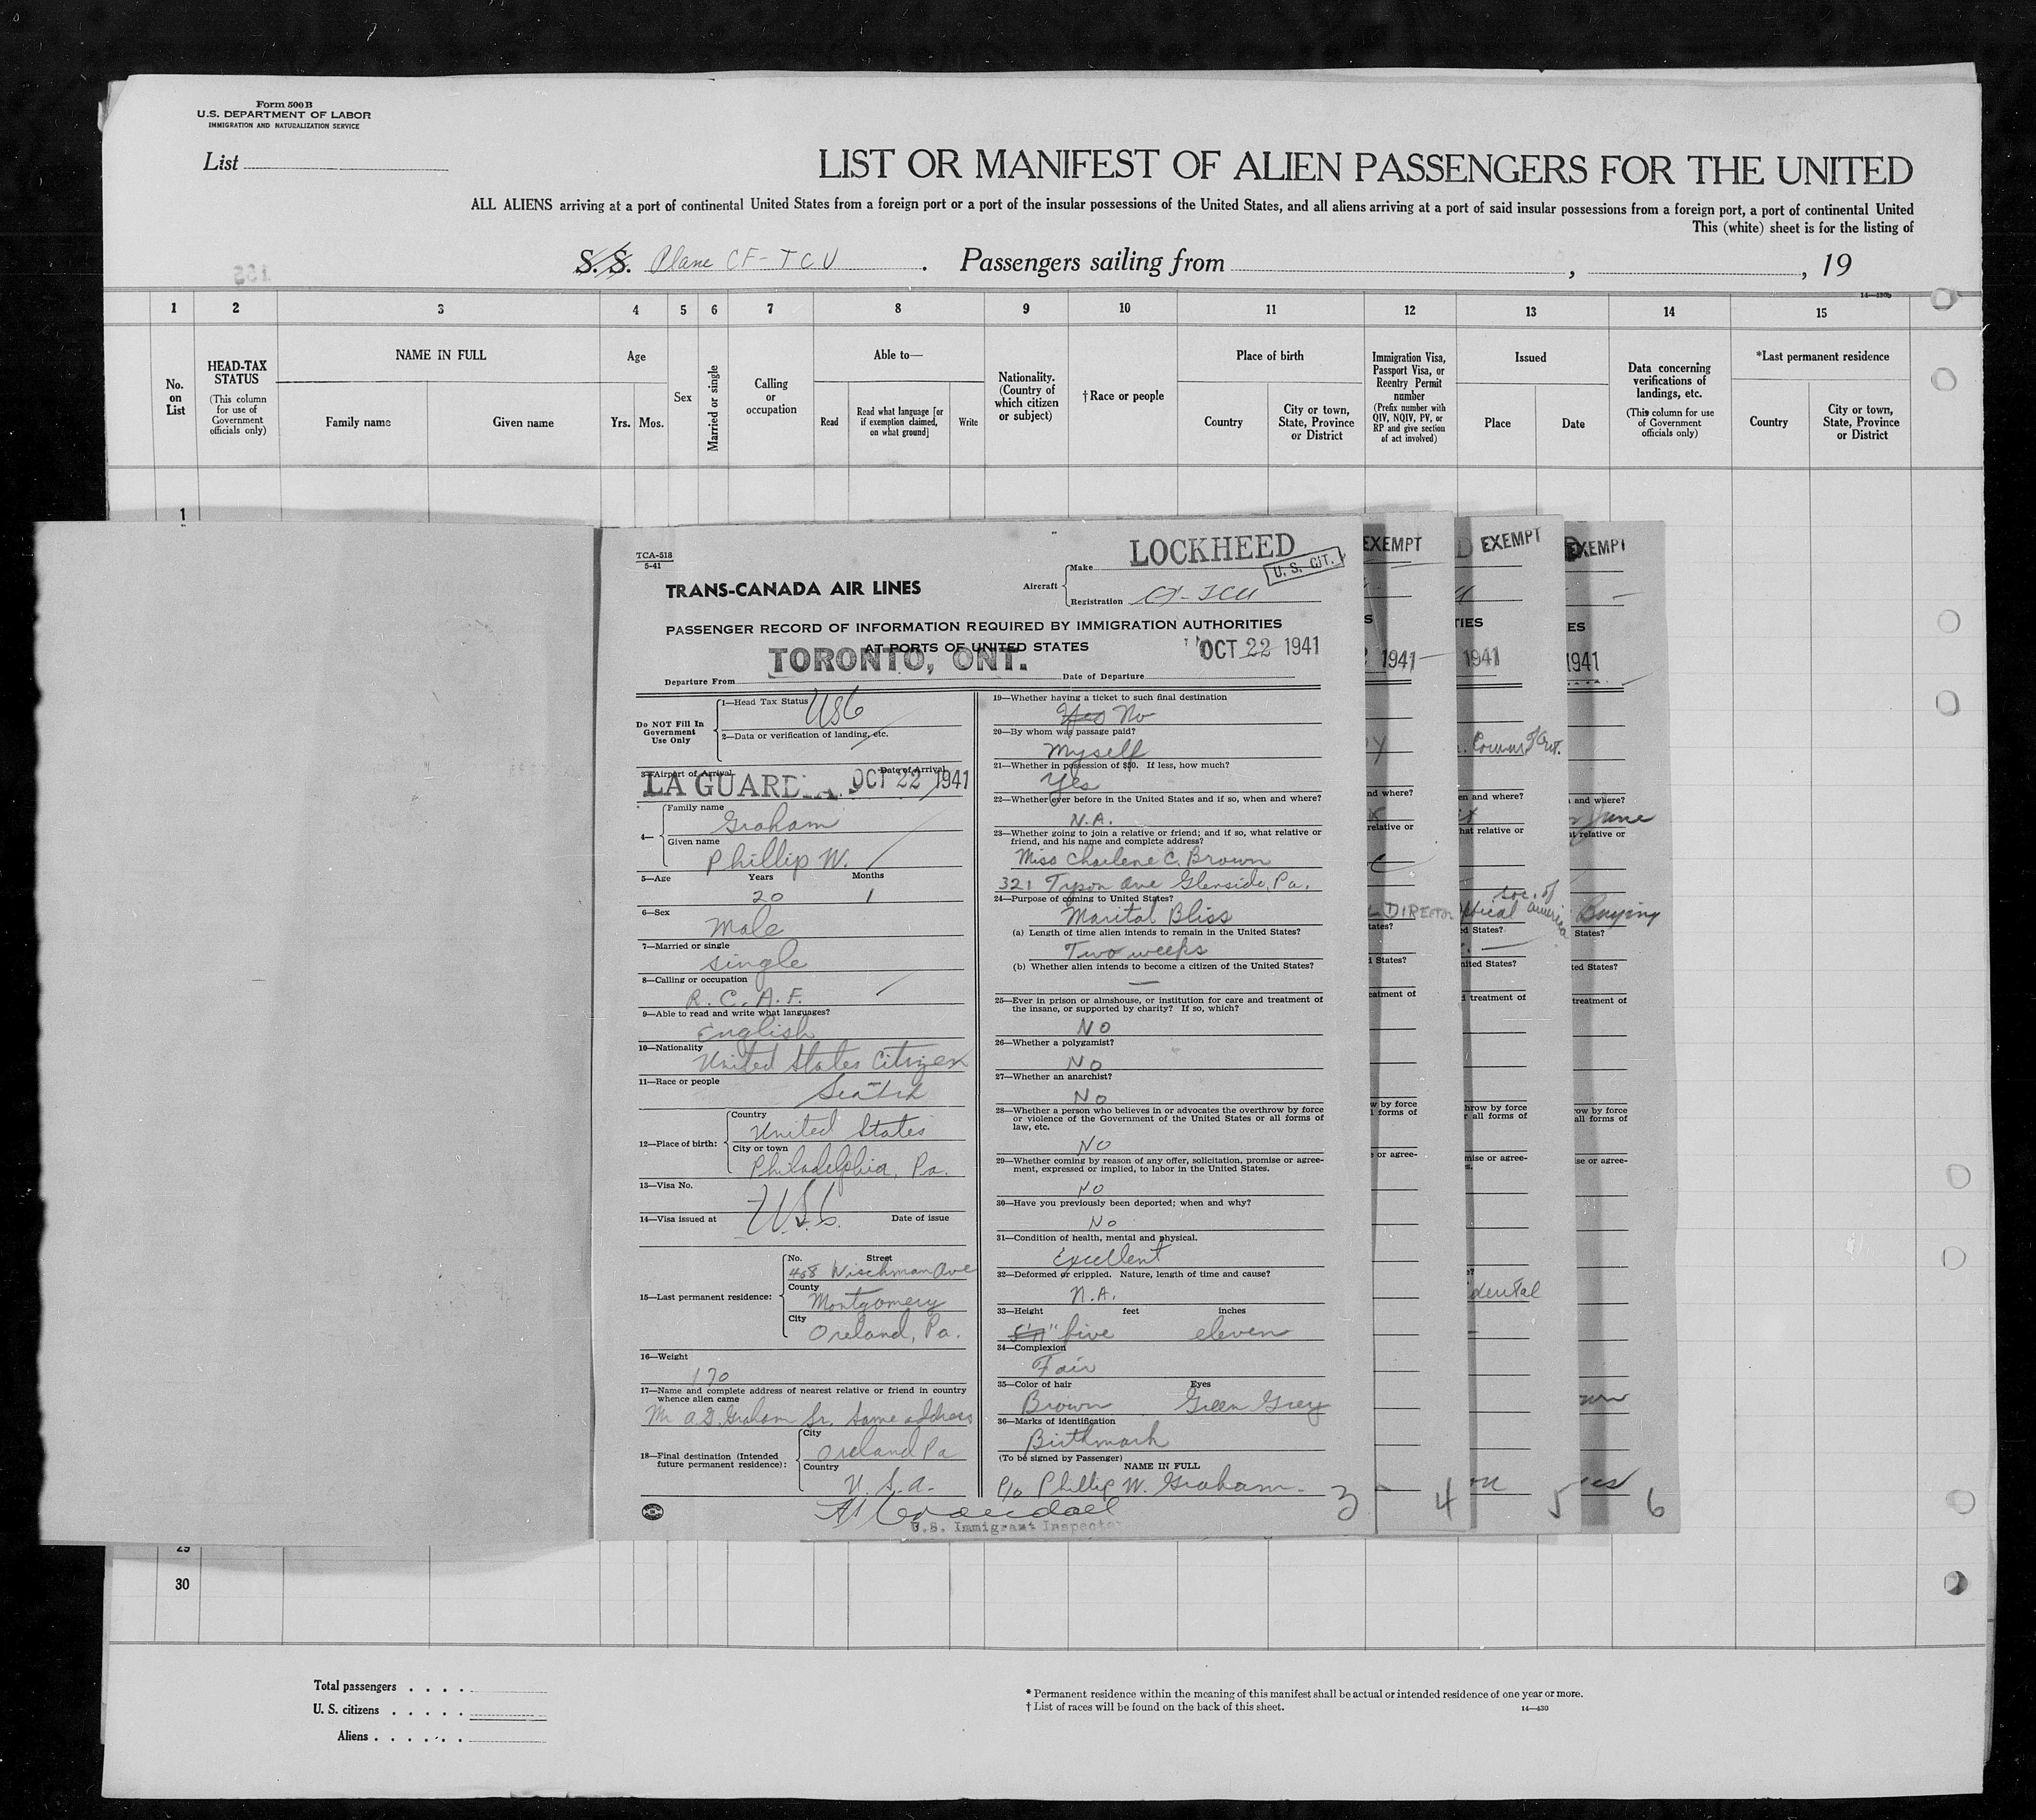 Form 500 B
U.S. DEPARTMENT OF LABOR
IMMIGRATION AND NATURALIZATION SERVICE
List
LIST OR MANIFEST OF ALIEN PASSENGERS FOR THE UNITED
ALL ALIENS arriving at a port of continental United States from a foreign port or a port of the insular possessions of the United States, and all aliens arriving at a port of said insular possessions from a foreign port, a port of continental United
This (white) sheet is for the listing of
S. S. Plane CF-TCU. Passengers sailing from , , 19
14—430b
1 2 3 4 5 6 7 8 9 10 11 12 13 14 15
No. on List
HEAD-TAX STATUS
(This column for use of Government officials only)
NAME IN FULL
Family name Given name
Age
Yrs. Mos.
Sex
Married or single
Calling or occupation
Able to—
Read
Read what language [or if exemption claimed, on what ground]
Write
Nationality. (Country of which citizen or subject)
†Race or people
Place of birth
Country
City or town, State, Province or District
Immigration Visa, Passport Visa, or Reentry Permit number
(Prefix number with QIV, NQIV, PV, or RP and give section of act involved)
Issued
Place Date
Data concerning verifications of landings, etc.
(This column for use of Government officials only)
*Last permanent residence
Country
City or town, State, Province or District
1
TCA-518
5-41
TRANS-CANADA AIR LINES
Aircraft
Make LOCKHEED
U. S. CIT.
Registration CF-TCU
PASSENGER RECORD OF INFORMATION REQUIRED BY IMMIGRATION AUTHORITIES
AT PORTS OF UNITED STATES
Departure From TORONTO, ONT. Date of Departure OCT 22 1941
Do NOT Fill In
Government
Use Only
1—Head Tax Status USC
2—Data or verification of landing, etc.
3—Airport of Arrival Date of Arrival
LA GUARDIA OCT 22 1941
4—
Family name
Graham
Given name
Phillip W.
5—Age Years Months
20 1
6—Sex
Male
7—Married or single
single
8—Calling or occupation
R. C. A. F.
9—Able to read and write what languages?
English
10—Nationality
United States Citizen
11—Race or people
Scotch
12—Place of birth:
Country
United States
City or town
Philadelphia, Pa.
13—Visa No.
U.S.C.
14—Visa issued at Date of issue
15—Last permanent residence:
No. Street
458 Wischman Ave
County
Montgomery
City
Oreland, Pa.
16—Weight
170
17—Name and complete address of nearest relative or friend in country
whence alien came
Mr A.D. Graham Sr. Same address
18—Final destination (Intended
future permanent residence):
City
Oreland Pa
Country
U. S. A.
19—Whether having a ticket to such final destination
Yes No
20—By whom was passage paid?
Myself
21—Whether in possession of $50. If less, how much?
Yes
22—Whether ever before in the United States and if so, when and where?
N.A.
23—Whether going to join a relative or friend; and if so, what relative or
friend, and his name and complete address?
Miss Charlene C. Brown
321 Tyson Ave Glenside, Pa.
24—Purpose of coming to United States?
Marital Bliss
(a) Length of time alien intends to remain in the United States?
Two weeks
(b) Whether alien intends to become a citizen of the United States?
—
25—Ever in prison or almshouse, or institution for care and treatment of
the insane, or supported by charity? If so, which?
NO
26—Whether a polygamist?
NO
27—Whether an anarchist?
NO
28—Whether a person who believes in or advocates the overthrow by force
or violence of the Government of the United States or all forms of
law, etc.
NO
29—Whether coming by reason of any offer, solicitation, promise or agree-
ment, expressed or implied, to labor in the United States.
NO
30—Have you previously been deported; when and why?
No
31—Condition of health, mental and physical.
Excellent
32—Deformed or crippled. Nature, length of time and cause?
N.A.
33—Height feet inches
5'11" five eleven
34—Complexion
Fair
35—Color of hair Eyes
Brown Green Grey
36—Marks of identification
Birthmark
(To be signed by Passenger)
NAME IN FULL
P/o Phillip W. Graham. 3
U.S. Immigrant Inspector
EXEMPT EXEMPT EXEMPT
1941 1941 1941
DIRECTOR
Soc. of
America
Buying
June
dental
4 5 6
29
30
Total passengers . . . .
U. S. citizens . . . . .
Aliens . . . . . .
* Permanent residence within the meaning of this manifest shall be actual or intended residence of one year or more.
† List of races will be found on the back of this sheet. 14—430